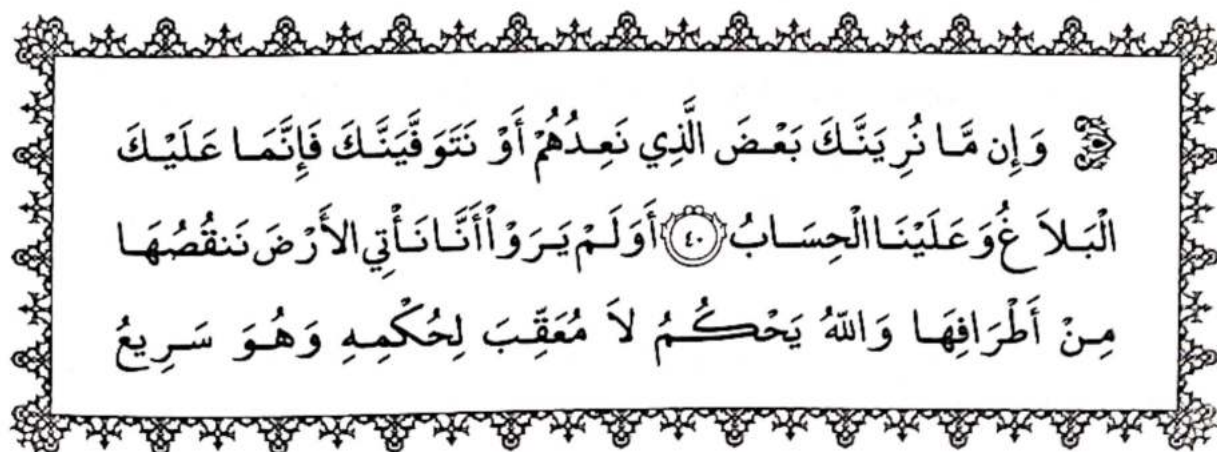 وَإِن مَّا نُرِيَنَّكَ بَعْضَ الَّذِي نَعِدُهُمْ أَوْ نَتَوَفَّيَنَّكَ فَإِنَّمَا عَلَيْكَ
الْبَلاَغُ وَعَلَيْنَا الْحِسَابُ ٤٠ أَوَلَمْ يَرَوْاْ أَنَّا نَأْتِي الأَرْضَ نَنقُصُهَا
مِنْ أَطْرَافِهَا وَاللّهُ يَحْكُمُ لاَ مُعَقِّبَ لِحُكْمِهِ وَهُوَ سَرِيعُ